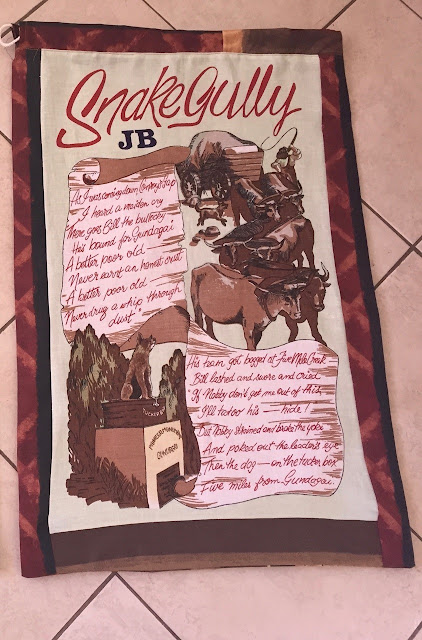 Snake Gully
JB
As I was coming down Conroy's Gap
I heard a maiden cry
"There goes Bill the bullocky
He's bound for Gundagai
A better poor old —
Never earnt an honest crust
A better poor old —
Never drug a whip through
dust".
His team got bogged at Five Mile Creek
Bill lashed and swore and cried
"If Nobby don't get me out of this
I'll tatoo his — hide!
But Nobby strained and broke the yoke
And poked out the leader's eye
Then the dog — on the tucker box
Five miles from Gundagai.
TUCKER